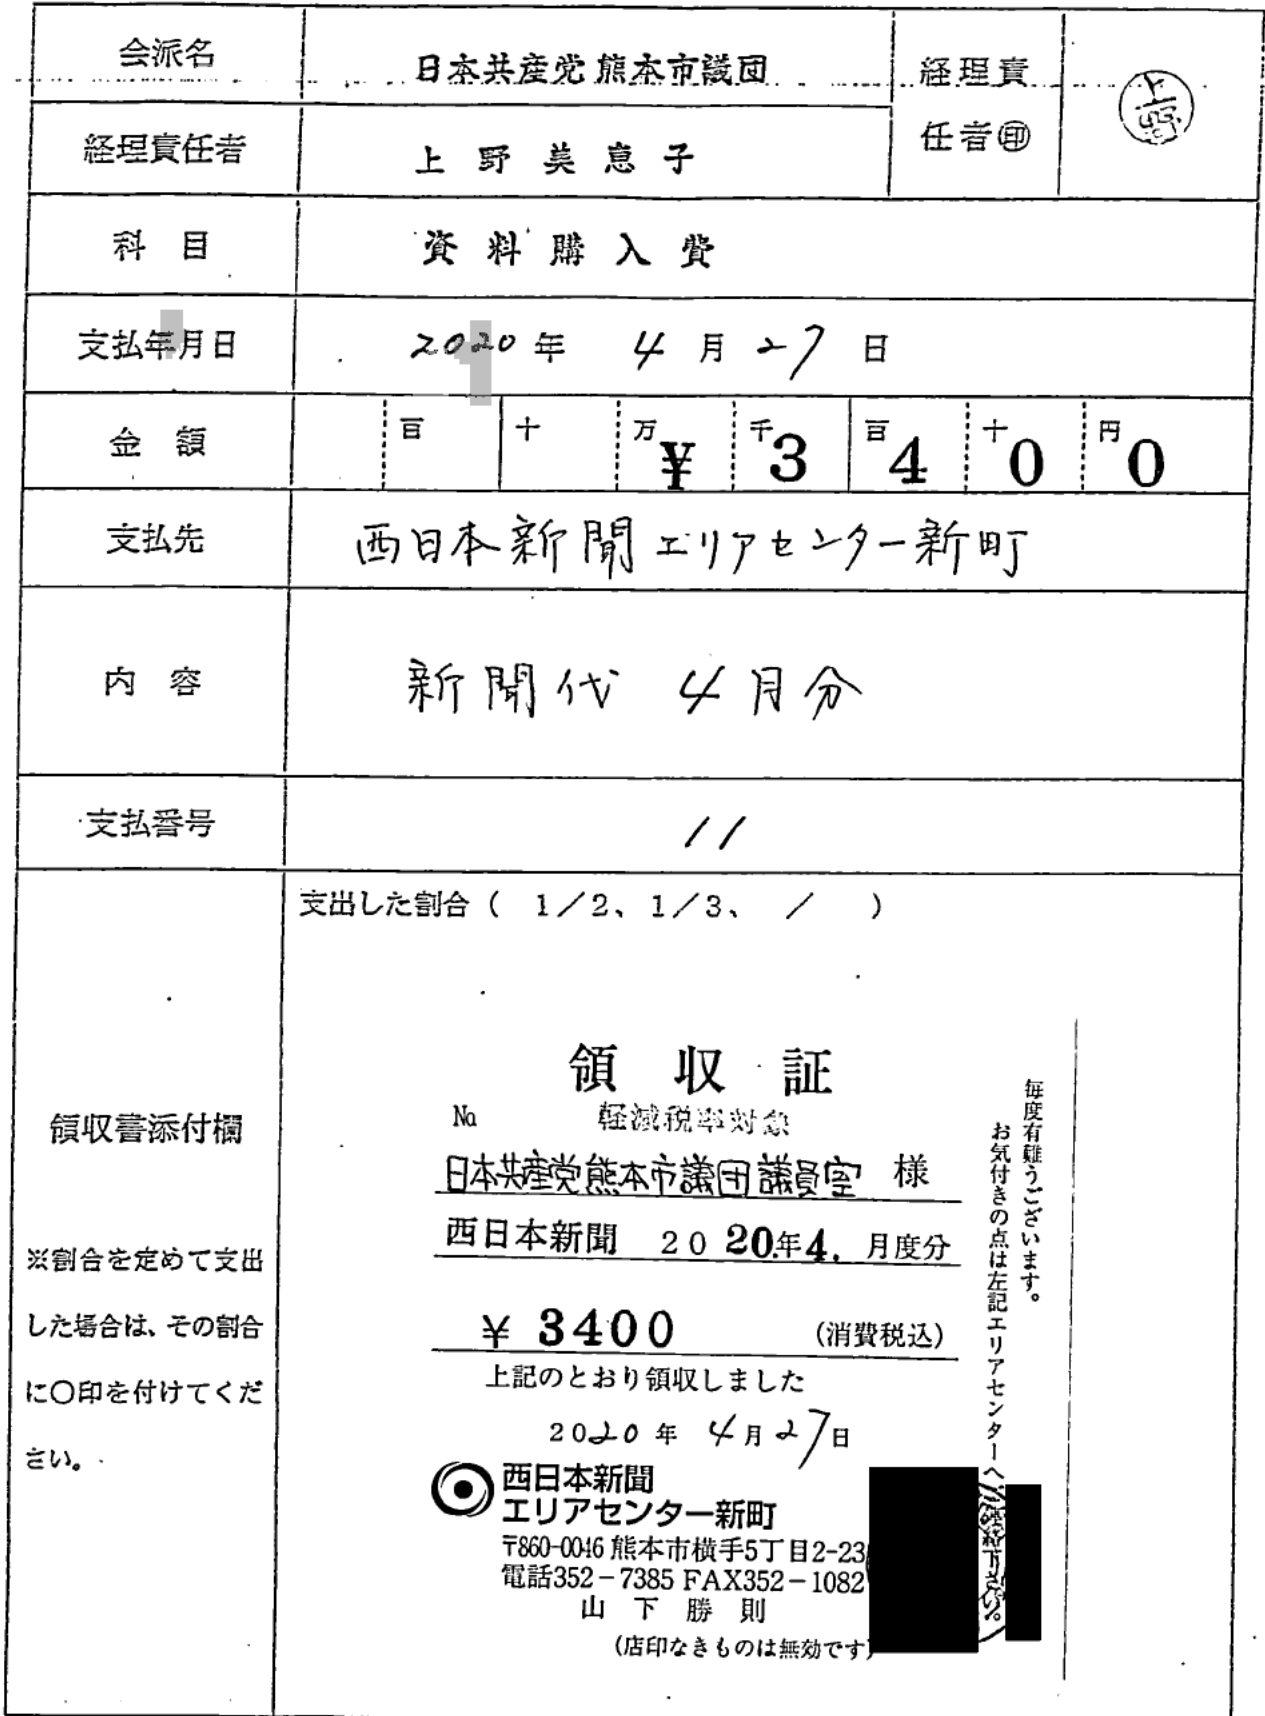 会派名 日本共産党熊本市議団 経理責任者㊞ 上野
経理責任者 上野美恵子
科目 資料購入費
支払年月日 2020年 4月27日
金額 百 十 万¥ 千3 百4 十0 円0
支払先 西日本新聞エリアセンター新町
内容 新聞代 4月分
支払番号 11
支出した割合( 1/2、1/3、 / )
領収書添付欄
※割合を定めて支出
した場合は、その割合
に〇印を付けてくだ
さい。
領収証
No 軽減税率対象
日本共産党熊本市議団議員室 様
西日本新聞 2020年4.月度分
¥3400 (消費税込)
上記のとおり領収しました
2020年 4月27日
西日本新聞
エリアセンター新町
〒860-0046 熊本市横手5丁目2-23
電話352-7385 FAX352-1082
山下勝則
(店印なきものは無効です)
毎度有難うございます。
お気付きの点は左記エリアセンターへご連絡下さい。